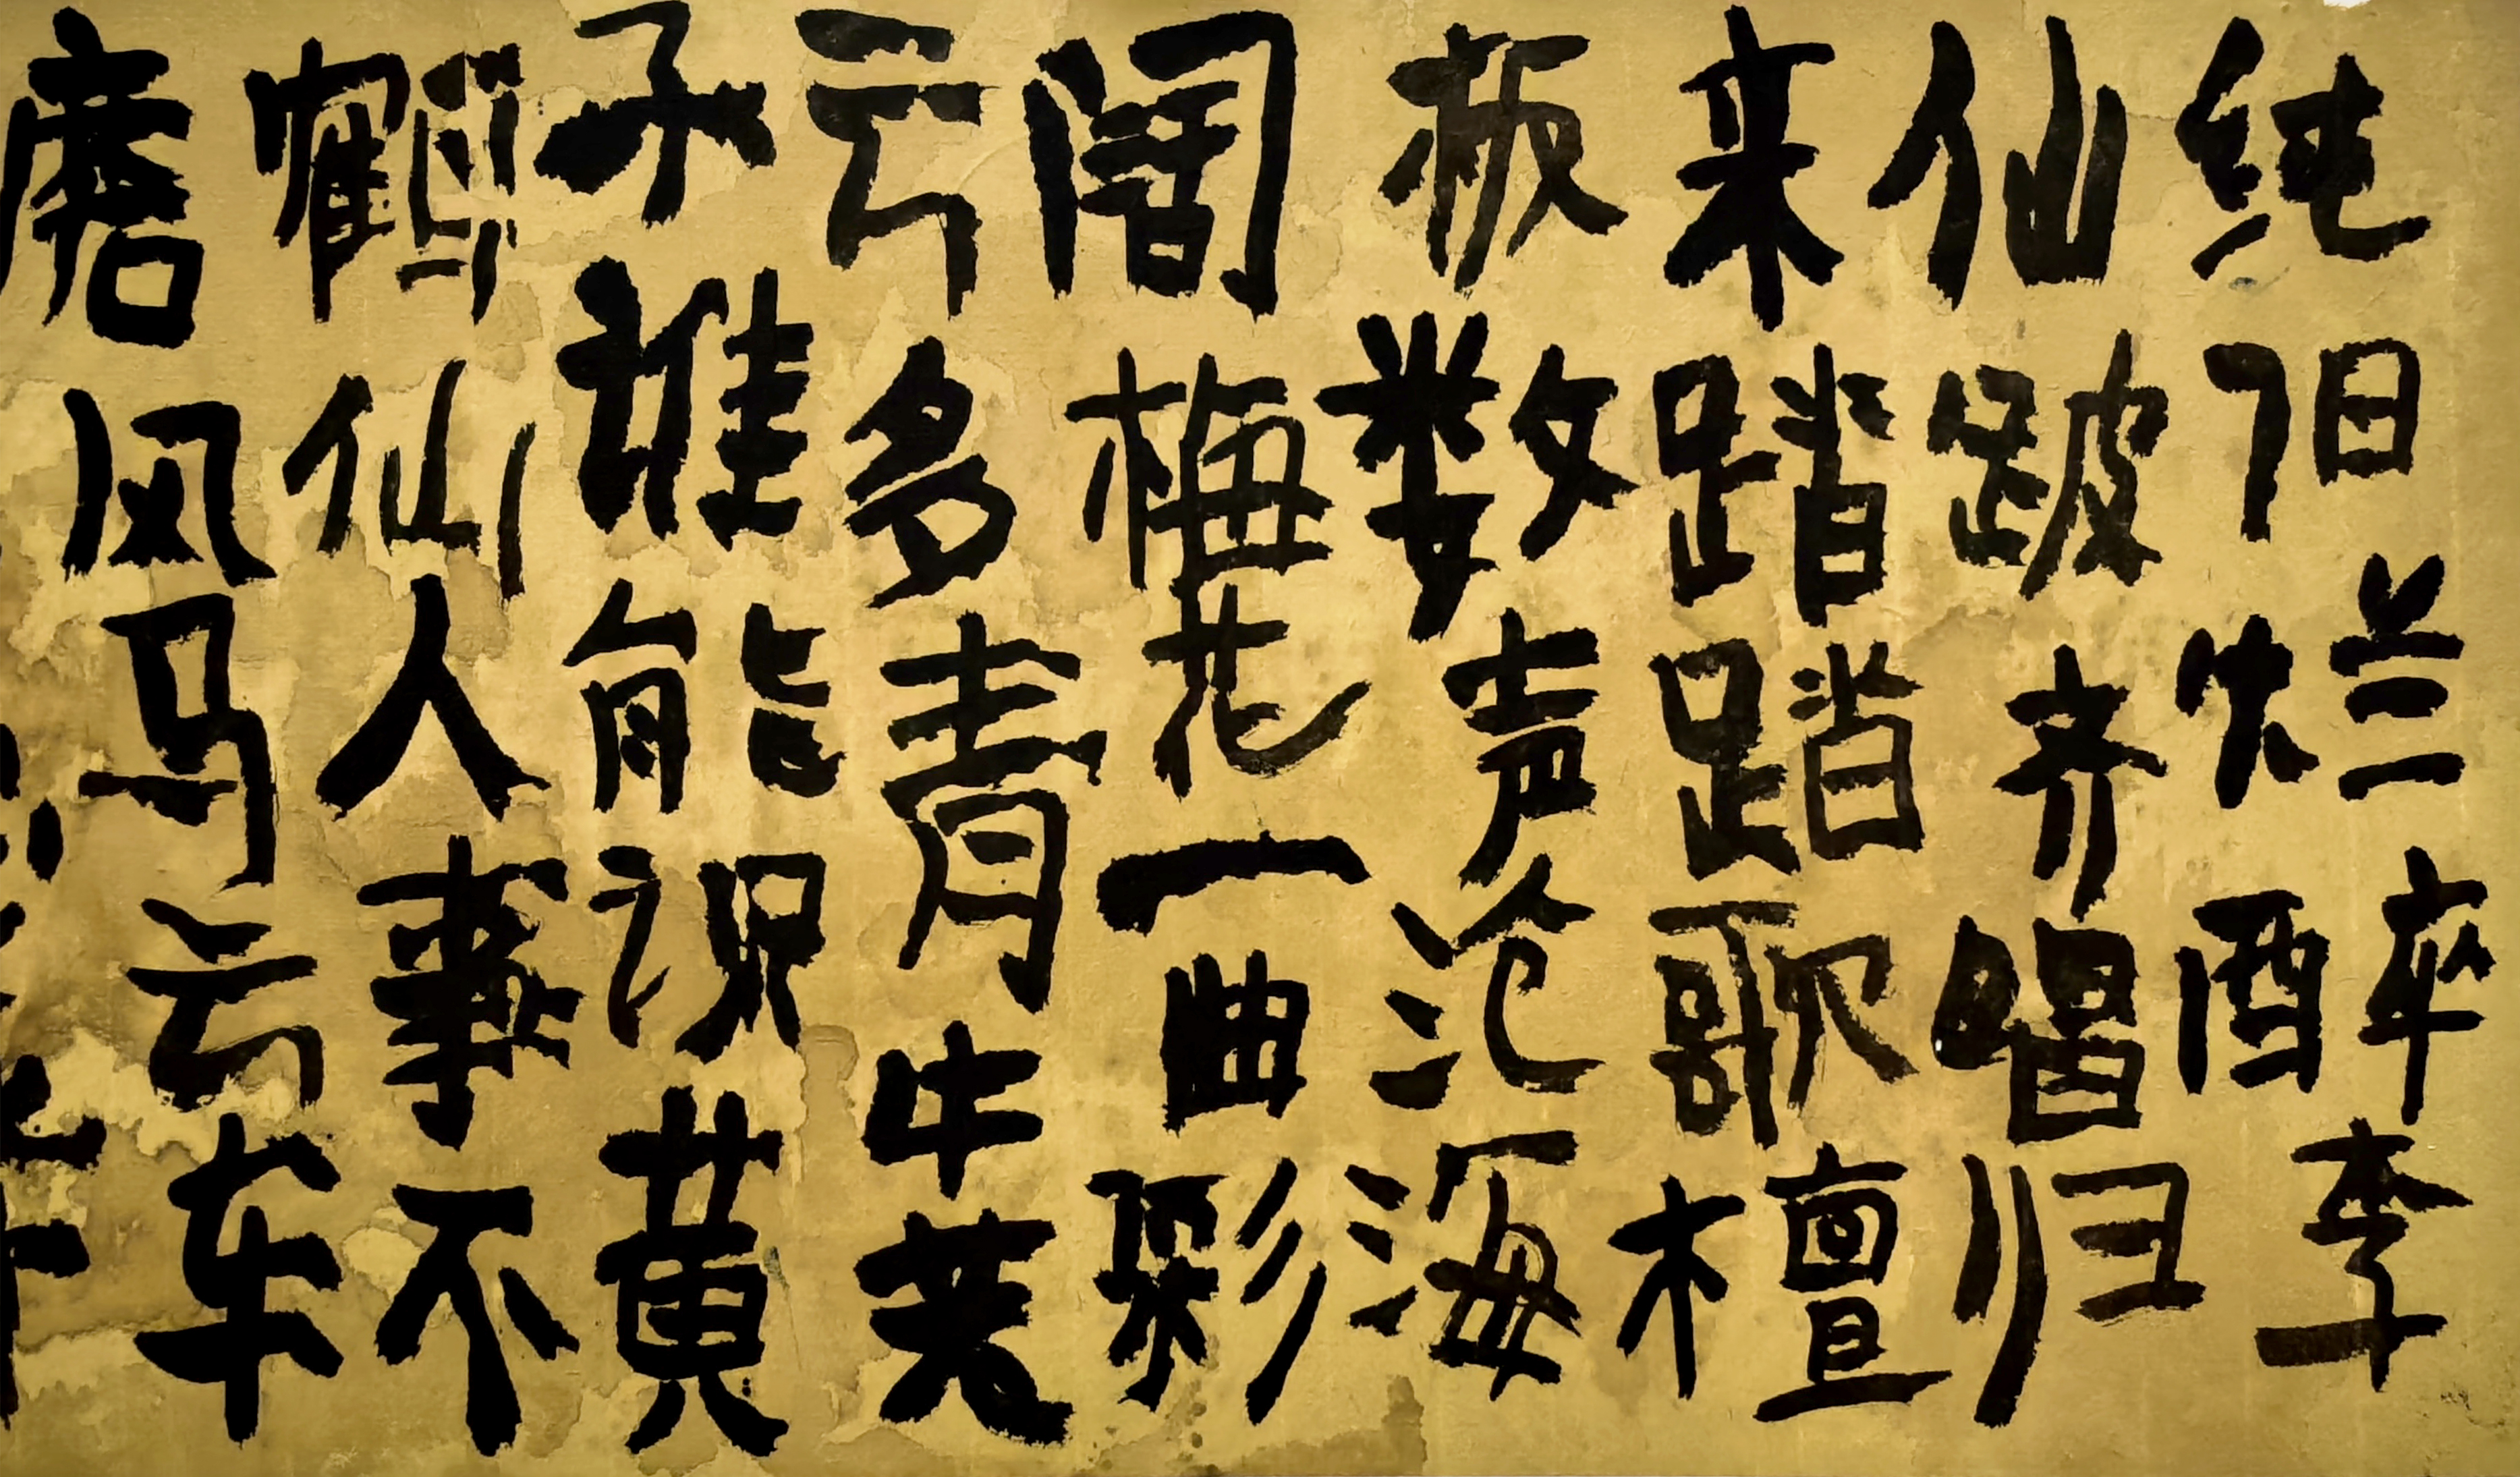 纯阳烂醉李
仙跛齐唱归
来踏踏歌檀
板数声沧海
阔梅花一曲彩
云多青牛芙
子谁能识黄
鹤仙人事不
磨风马云车